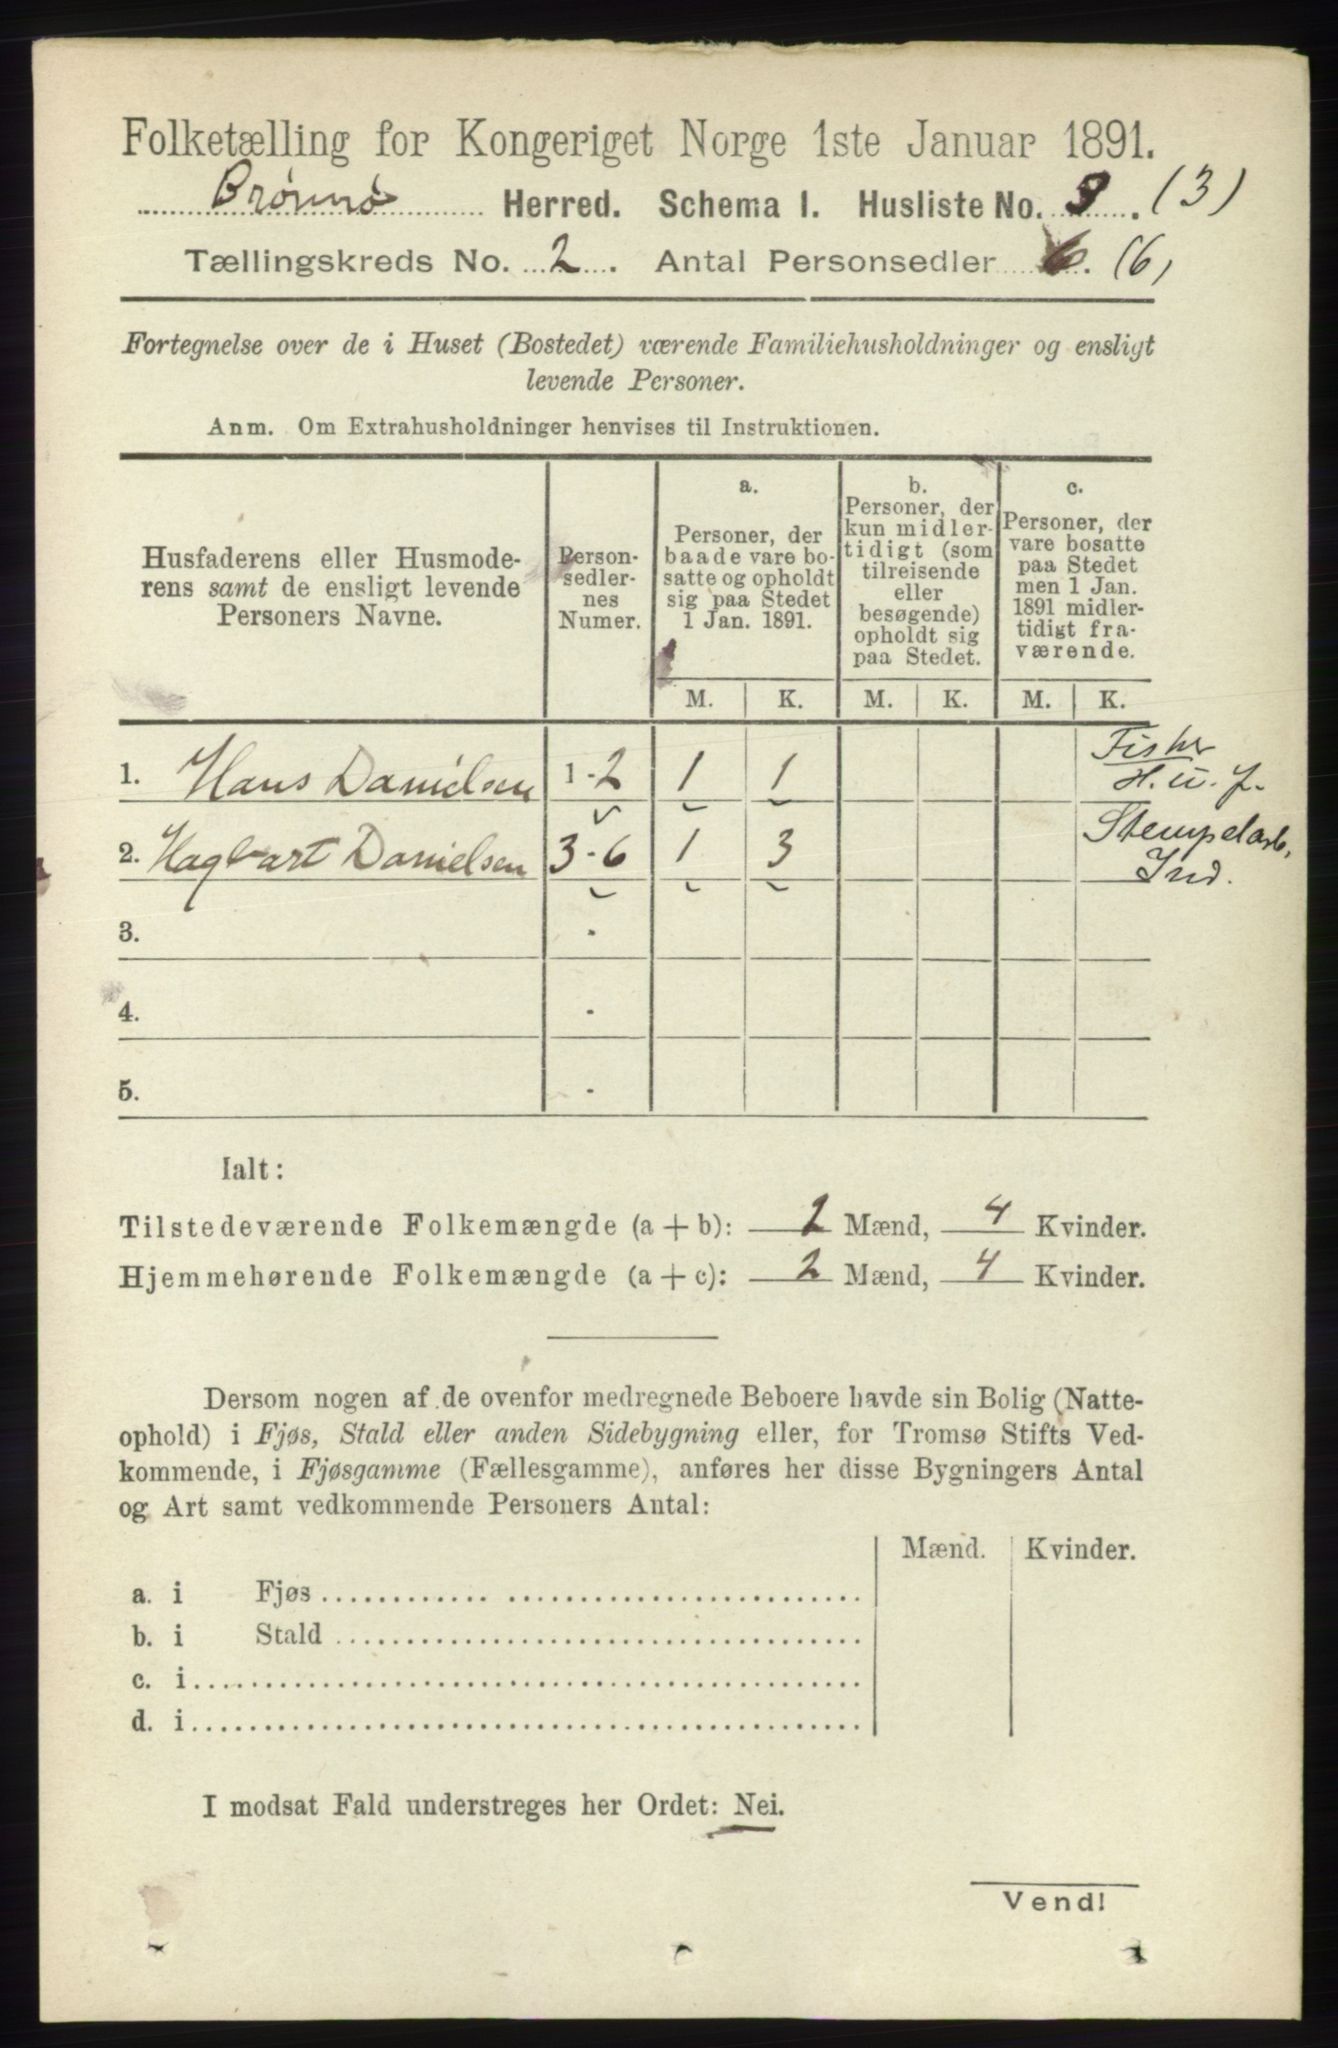 Folketælling for Kongeriget Norge 1ste Januar 1891.
Brønnø Herred. Schema I. Husliste No. 3. (3)
Tællingskreds No. 2. Antal Personsedler 6. (6)
Fortegnelse over de i Huset (Bostedet) værende Familiehusholdninger og ensligt
levende Personer.
Anm. Om Extrahusholdninger henvises til Instruktionen.
Husfaderens eller Husmode-
rens samt de ensligt levende
Personers Navne.
Person-
sedler-
nes
Numer.
a.
Personer, der
baade vare bo-
satte og opholdt
sig paa Stedet
1 Jan. 1891.
b.
Personer, der
kun midler-
tidigt (som
tilreisende
eller
besøgende)
opholdt sig
paa Stedet.
c.
Personer, der
vare bosatte
paa Stedet
men 1 Jan.
1891 midler-
tidigt fra-
værende.
M. K. M. K. M. K.
1. Hans Danielsen 1-2 1 1 Fisker
H. u. J.
2. Hagbart Danielsen 3-6 1 3 Stempelarb,
Ind.
3. -
4. -
5. -
Ialt:
Tilstedeværende Folkemængde (a + b): 2 Mænd, 4 Kvinder.
Hjemmehørende Folkemængde (a + c): 2 Mænd, 4 Kvinder.
Dersom nogen af de ovenfor medregnede Beboere havde sin Bolig (Natte-
ophold) i Fjøs, Stald eller anden Sidebygning eller, for Tromsø Stifts Ved-
kommende, i Fjøsgamme (Fællesgamme), anføres her disse Bygningers Antal
og Art samt vedkommende Personers Antal:
Mænd. Kvinder.
a. i Fjøs
b. i Stald
c. i
d. i
I modsat Fald understreges her Ordet: Nei.
Vend!